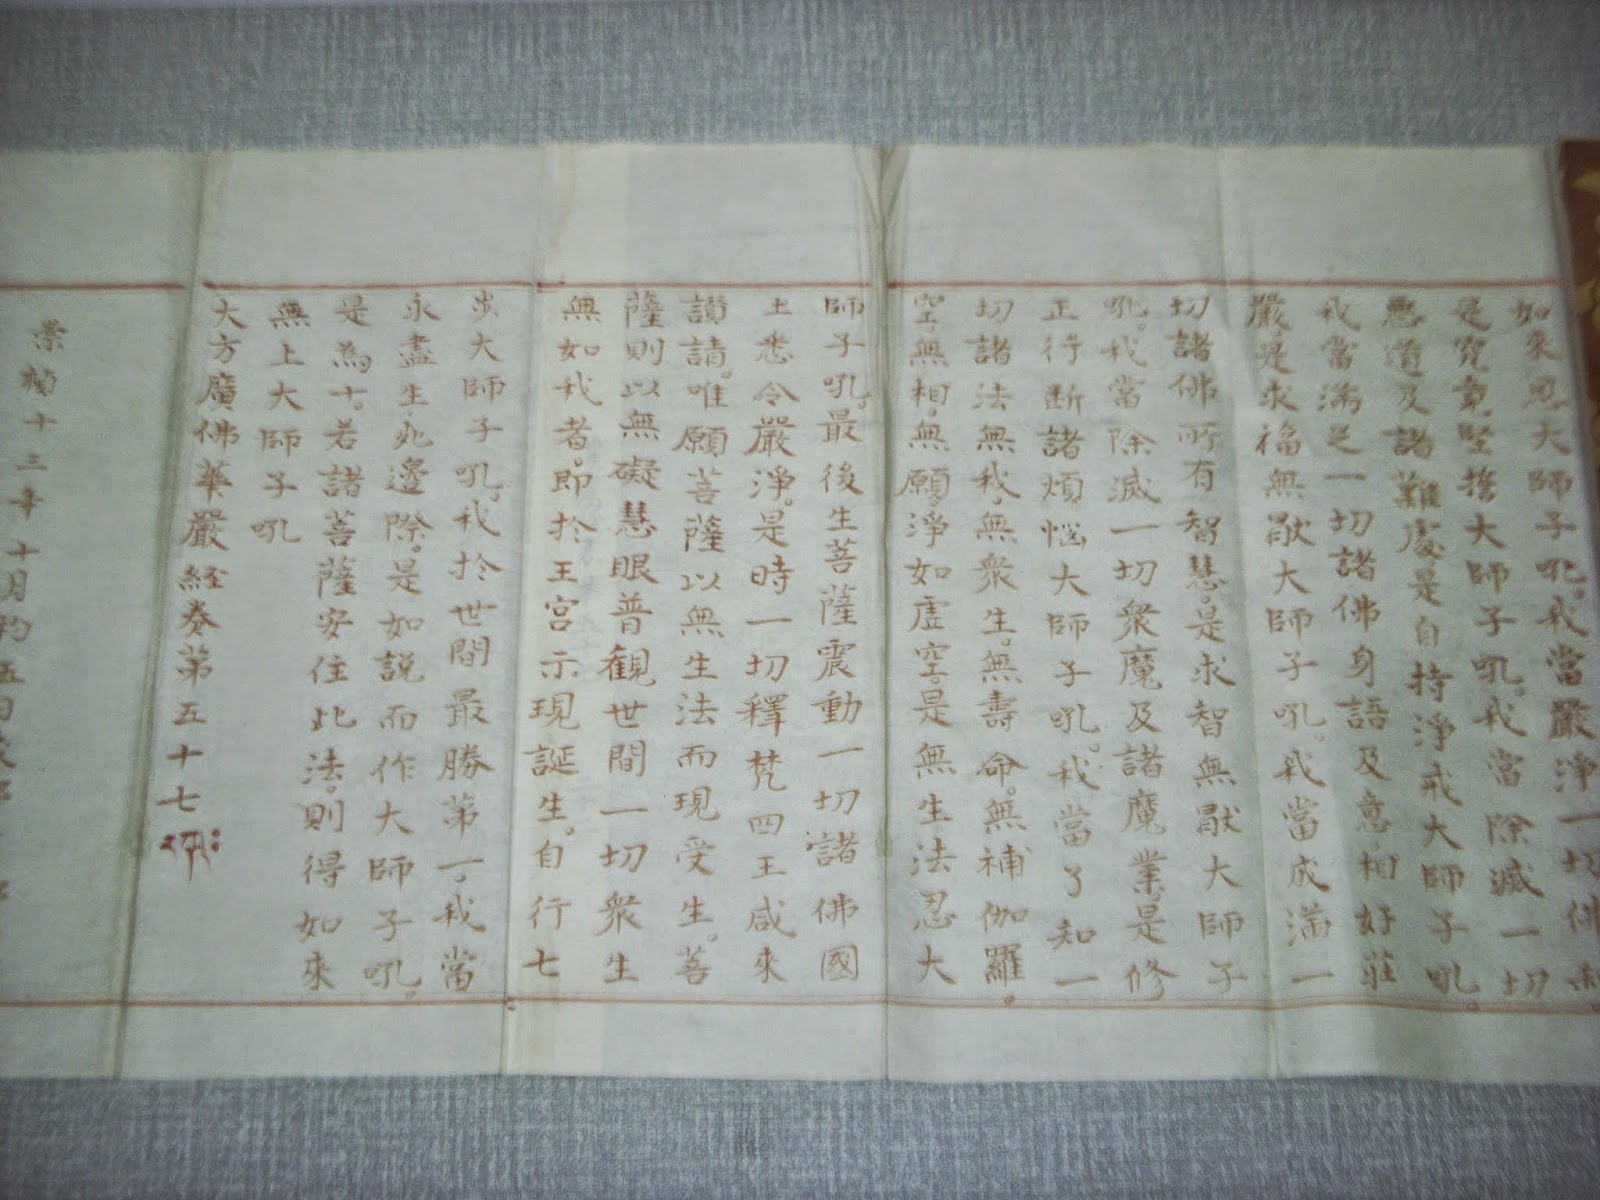 如來恩大師子吼。我當嚴淨一切佛剎
是究竟堅誓大師子吼。我當除滅一切
惡道及諸難處。是自持淨戒大師子吼。
我當滿足一切諸佛身語及意相好莊
嚴是求福無猒大師子吼。我當成滿一
切諸佛所有智慧是求智無猒大師子
吼。我當除滅一切衆魔及諸魔業是修
正行斷諸煩惱大師子吼。我當了知一
切諸法無我。無衆生。無壽命。無補伽羅。
空。無相。無願。淨如虛空。是無生法忍大
師子吼。最後生菩薩震動一切諸佛國
土悉令嚴淨。是時一切釋梵四王咸來
讚請。唯願菩薩以無生法而現受生。菩
薩則以無礙慧眼普觀世間一切衆生
無如我者。即於王宮示現誕生。自行七
步大師子吼。我於世間最勝第一。我當
永盡生死邊際。是如說而作大師子吼。
是為十。若諸菩薩安住此法。則得如來
無上大師子吼
大方廣佛華嚴経卷第五十七
崇禎十三年十月